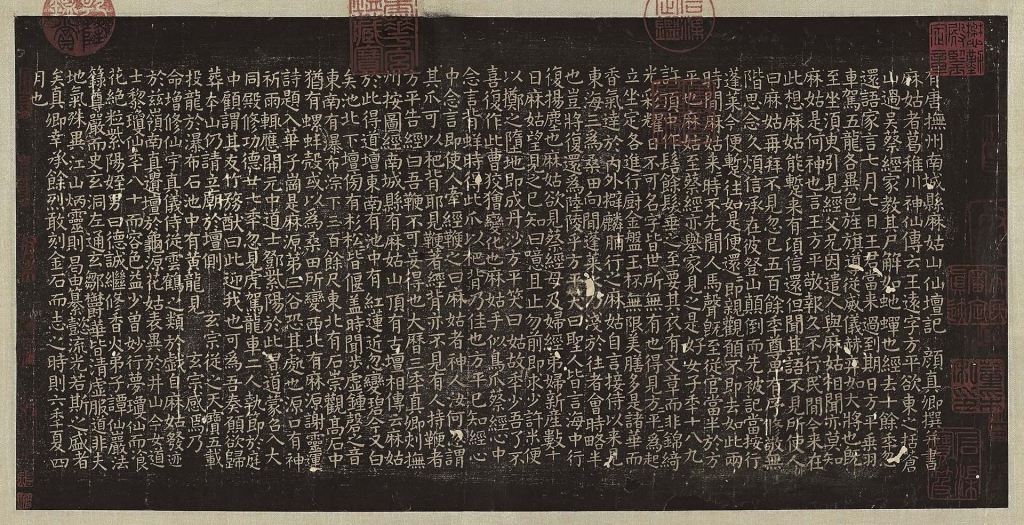 有唐撫州南城縣麻姑山仙壇記　顏真卿撰并書
麻姑者葛稚川神仙傳云王遠字方平欲東之括蒼
山過吳蔡經家教其尸解如蛇蟬也經去十餘季忽
還語家言七月七日王君當來過到期日方平乘羽
車駕五龍各異色旌旗導從威儀赫弈如大將也既
至坐須臾引見經父兄因遣人與麻姑相聞亦莫知
麻姑是何神也言王方平敬報久不行民間今來在
此想麻姑能暫來有頃信還但聞其語不見所使人
曰麻姑再拜不見忽已五百餘季尊卑有序修敬無
階思念久煩信承在彼登山顛倒而先被記當按行
蓬萊今便暫往如是便還還即親觀願不即去如此兩
時間麻姑來時不先聞人馬聲既至從官當半於方
平也麻姑至蔡經亦舉家見之是好女子季十八九
許頂中作髻餘髮垂之至要其衣有文章而非錦綺
光彩耀日不可名字皆世所無有也得見方平方平為起
立坐定各進行廚金盤玉杯無限美膳多是諸華而
香氣達於內外擗麟脯行之麻姑自言接待以來見
東海三為桑田向間蓬萊水乃淺於往者會時略半
也豈將復還為陸陵乎方平笑曰聖人皆言海中行
復揚塵也麻姑欲見蔡經母及婦經弟婦新產數十
日麻姑望見之已知曰噫且止勿前即求少許米便
以擲之墮地即成丹沙方平笑曰姑故季少吾了不
喜復作此曹狡獪變化也麻姑手似鳥爪蔡經心中
念言背蛘時得此爪以杷背乃佳也方平已知經心
中念言即使人牽經鞭之曰麻姑者神人汝何忽謂
其爪可以杷背耶見鞭著經背亦不見有人持鞭者
方平告經曰吾鞭不可妄得也大曆三季真卿刺撫
州按圖經南城縣有麻姑山頂有古壇相傳云麻姑
於此得道壇東南有池中有紅蓮近忽變碧今又白
矣池北下壇傍有杉松皆偃蓋時聞步虛鍾磬之音
東南有瀑布淙下三百餘尺東北有石崇觀高石中
猶有螺蚌殼或以為桑田所變西北有麻源謝靈運
詩題入華子崗是麻源第三谷恐其處也源口有神
祈雨輒應開元中道士鄧紫陽於此習道蒙召入大
同殿修功德廿七季忽見虎駕龍車二人執節於庭
中顧謂其友竹務猷曰此迎我也可為吾奏願欲歸
葬本山仍請立廟於壇側　玄宗從之天寶五載
投龍於瀑布石池中有黃龍見　玄宗感焉乃
命增修仙宇真儀侍從雲鶴之類於戲自麻姑發迹
於茲嶺南真遺壇於龜源花姑表異於井山今女道
士黎瓊仙季八十而容色益少曾妙行夢瓊仙而飡
花絕粒紫陽姪男曰德誠繼修香火弟子譚仙巖法
籙尊嚴而史玄洞左通玄鄒鬱華皆清虛服道非夫
地氣殊異江山炳靈則曷由纂懿流光若斯之盛者
矣真卿幸承餘烈敢刻金石而志之時則六季夏四
月也